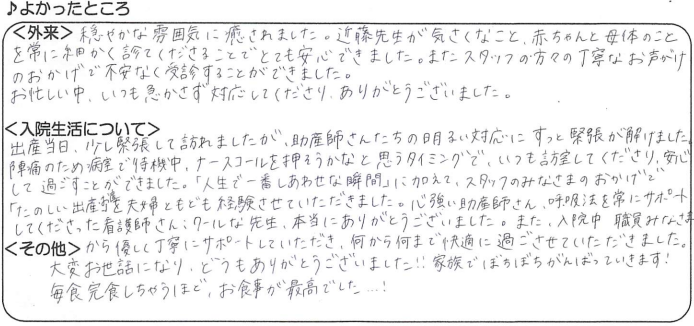 ♪よかったところ
＜外来＞ 穏やかな雰囲気に癒されました。近藤先生が気さくなこと、赤ちゃんと母体のこと
を常に細かく診てくださることでとても安心できました。またスタッフの方々の丁寧なお声がけ
のおかげで不安なく受診することができました。
お忙しい中、いつも急かさず対応してくださり、ありがとうございました。
＜入院生活について＞
出産当日、少し緊張して訪れましたが、助産師さんたちの明るい対応にすっと緊張が解けました。
陣痛のため病室で待機中、ナースコールを押そうかなと思うタイミングで、いつも訪室してくださり、安心
して過ごすことができました。「人生で一番しあわせな瞬間」に加えて、スタッフのみなさまのおかげで
「たのしい出産」を夫婦ともども経験させていただきました。心強い助産師さん、呼吸法を常にサポート
してくださった看護師さん、クールな先生、本当にありがとうございました。また、入院中 職員みなさま
＜その他＞ から優しく丁寧にサポートしていただき、何から何まで快適に過ごさせていただきました。
大変お世話になり、どうもありがとうございました!! 家族でぼちぼちがんばっていきます!
毎食完食しちゃうほど、お食事が最高でした…!